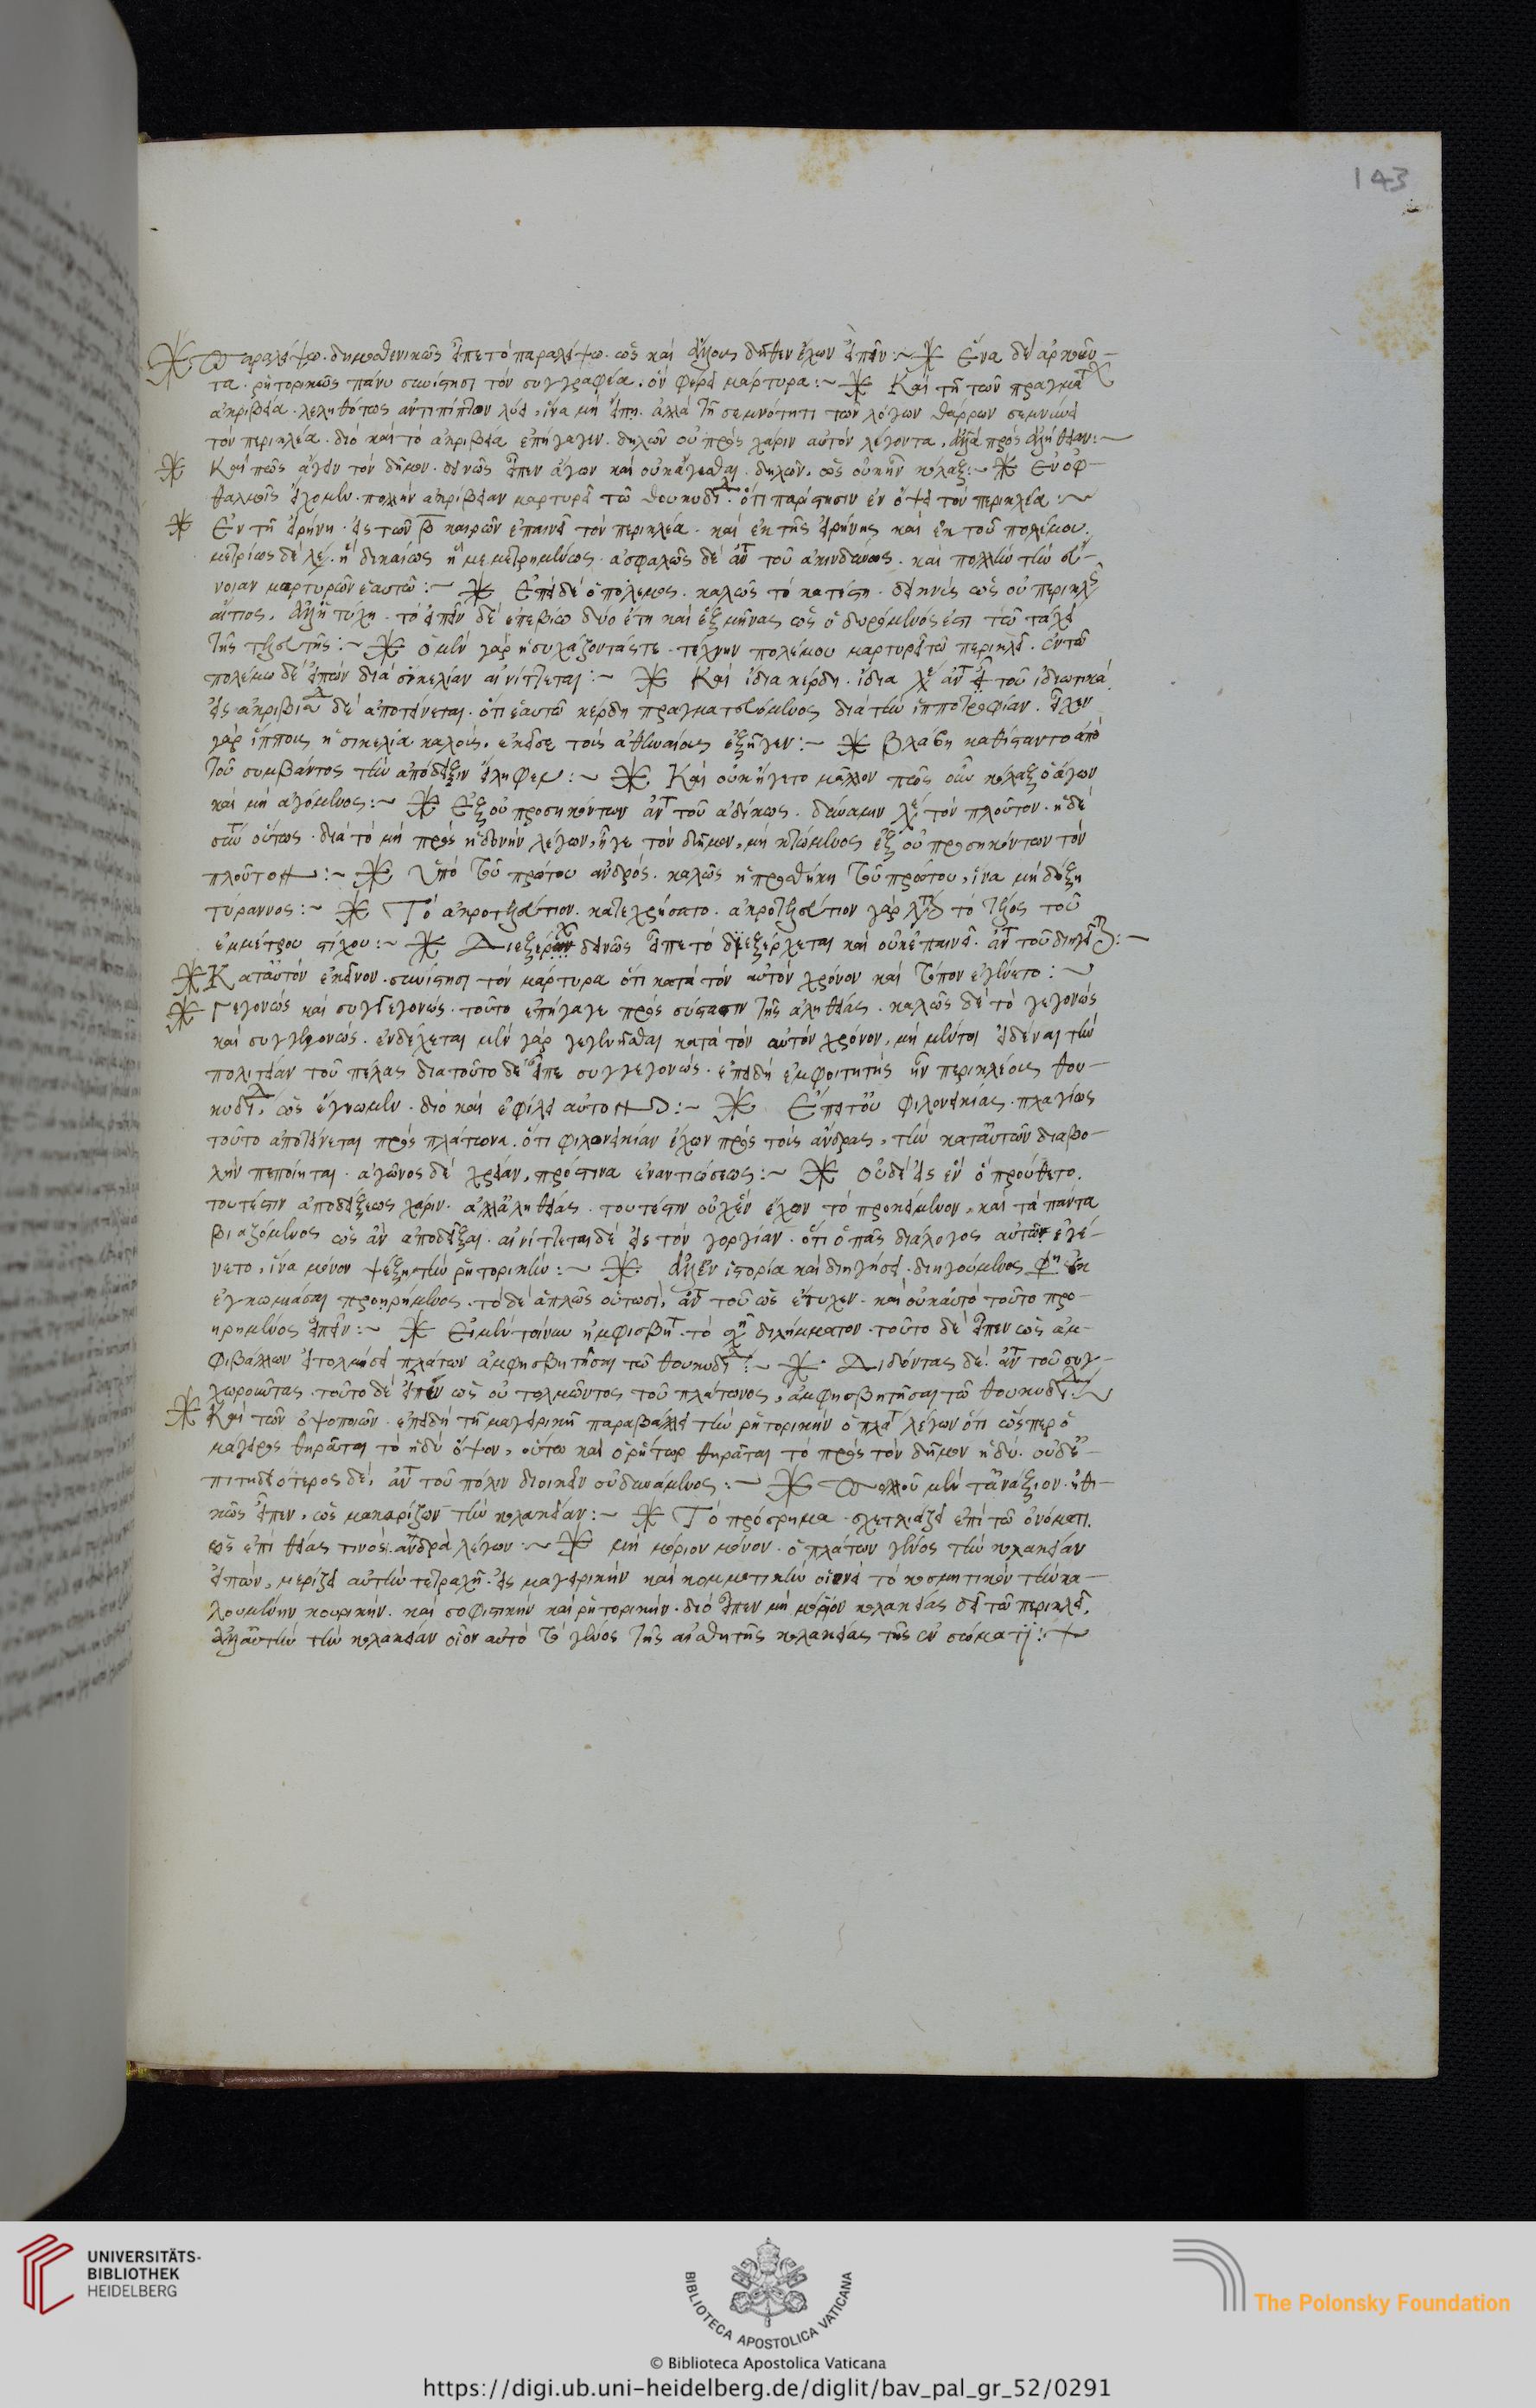 143
Παραλείψω. δημοσθενικῶς εἶπε τὸ παραλείψω. ὡς καὶ ἄλλους δῆθεν ἔχων εἰπεῖν :~ Ἕνα δὲ ἀρκοῦν-
τα. ῥητορικῶς πάνυ συνίστησι τὸν συγγραφέα. ὃν φέρει μάρτυρα :~ Καὶ τῇ τῶν πραγμάτ
ἀκριβεία. λεληθότως ἀντιπίπτον λύει, ἵνα μὴ εἴπῃ. ἀλλὰ τῇ σεμνότητι τῶν λόγων θαρρῶν σεμνύνει
τὸν περικλέα. διὸ καὶ τὸ ἀκριβεία ἐπήγαγεν. δηλῶν οὐ πρὸς χάριν αὐτὸν λέγοντα, ἀλλὰ πρὸς ἀλήθειαν :~
Καὶ πῶς ἄγειν τὸν δῆμον. δεινῶς εἶπεν ἄγων καὶ οὐκ ἄγεσθαι. δηλῶν, ὡς οὐκ ἦν κόλαξ :~ Ἐν ὀφ-
θαλμοῖς ἔχομεν. πολλὴν ἀκρίβειαν μαρτυρεῖ τῷ θουκυδί. ὅτι παρίστησιν ἐν ὄψει τὸν περικλέα :~
Ἐν τῇ εἰρήνῃ. ἐκ τῶν β καιρῶν ἐπαινεῖ τὸν περικλέα. καὶ ἐκ τῆς εἰρήνης καὶ ἐκ τοῦ πολέμου.
μετρίως δὲ λέ. ἢ δικαίως ἢ μεμετρημένως. ἀσφαλῶς δὲ ἀντ τοῦ ἀκινδύνως. καὶ πολλὴν τὴν εὔ-
νοιαν μαρτυρῶν ἑαυτῷ :~ Ἐπεὶ δὲ ὁ πόλεμος. καλῶς τὸ κατέστη. δεικνὺς ὡς οὐ περικλῆς
αἴτιος, ἀλλ' ἡ τύχη. τὸ εἰπεῖν δὲ ἐπεβίω δύο ἔτη καὶ ἓξ μῆνας ὡς ὀδυρόμενός ἐστι τῷ τάχει
τῆς τελευτῆς :~ Ὁ μὲν γὰρ ἡσυχάζοντάς τε. τέχνην πολέμου μαρτυρεῖ τῷ περικλεῖ. ἐν τῷ
πολέμῳ δὲ εἰπὼν διὰ σικελίαν αἰνίττεται :~ Καὶ ἴδια κέρδη. ἴδια λέ ἀντὶ τοῦ ἰδιωτικά
εἰς ἀλκιβιά δὲ ἀποτείνεται. ὅτι ἑαυτῷ κέρδη πραγματευόμενος διὰ τὴν ἱπποτροφίαν. εἶχεν
γὰρ ἵππους ἡ σικελία καλούς, ἐκεῖσε τοὺς ἀθηναίους ἐξῆγεν :~ Βλάβη καθίσταντο ἀπὸ
τοῦ συμβάντος τὴν ἀπόδειξιν εἴληφεν :~ Καὶ οὐκ ἤγετο μᾶλλον πῶς οὖν κόλαξ ὁ ἄγων
καὶ μὴ ἀγόμενος :~ Ἐξ οὐ προσηκόντων ἀντ τοῦ ἀδίκως. δύναμιν λέ τὸν πλοῦτον. ἡ δὲ
οὕτως. διὰ τὸ μὴ πρὸς ἡδονὴν λέγων, ἦγε τὸν δῆμον, μὴ κτώμενος ἐξ οὐ προσηκόντων τὸν
πλοῦτον :~ Ὑπὸ τοῦ πρώτου ἀνδρός. καλῶς ἡ προσθήκη τοῦ πρώτου, ἵνα μὴ δόξῃ
τύραννος :~ Τὸ ἀκροτελεύτιον. κατεχρήσατο. ἀκροτελεύτιον γὰρ λέγεται τὸ τέλος τοῦ
ἐμμέτρου στίχου :~ Διεξέρχ δεινῶς εἶπε τὸ διεξέρχεται καὶ οὐκ ἐπαινεῖ. ἀντ τοῦ διηγεῖται :~
Κατ' αὐτὸν ἐκεῖνον. συνίστησι τὸν μάρτυρα ὅτι κατὰ τὸν αὐτὸν χρόνον καὶ τόπον ἐγένετο :~
Γεγονὼς καὶ συγγεγονώς. τοῦτο ἐπήγαγε πρὸς σύστασιν τῆς ἀληθείας. καλῶς δὲ τὸ γεγονὼς
καὶ συγγεγονώς. ἐνδέχεται μὲν γὰρ γεγενῆσθαι κατὰ τὸν αὐτὸν χρόνον, μὴ μέντοι εἰδέναι τὴν
πολιτείαν τοῦ πέλας διὰ τοῦτο δὲ εἶπε συγγεγονώς. ἐπειδὴ ἐμφοιτητὴς ἦν περικλέους θου-
κυδί, ὡς ἔγνωμεν. διὸ καὶ ἐφίλει αὐτόν :~ Ἔπειτ' οὐ φιλονεικίας. πλαγίως
τοῦτο ἀποτείνεται πρὸς πλάτωνα. ὅτι φιλονεικίαν ἔχων πρὸς τοὺς ἄνδρας, τὴν κατ' αὐτῶν διαβο-
λὴν πεποίηται. ἀγῶνος δὲ χρείαν, πρός τινα ἐναντιώσεως :~ Οὐδὲ εἰς ἓν ὃ προύθετο.
τουτέστιν ἀποδείξεως χάριν. ἀλλ' ἀληθείας. τουτέστιν οὐχ ἓν ἔχων τὸ προκείμενον, καὶ τὰ πάντα
βιαζόμενος ὡς ἂν ἀποδεῖξαι. αἰνίττεται δὲ εἰς τὸν γοργίαν. ὅτι ὁ πᾶς διάλογος αὐτῶν ἐγέ-
νετο, ἵνα μόνον ψέξῃ τὴν ῥητορικήν :~ Ἀλλ' ἐν ἱστορίᾳ καὶ διηγήσει. διηγούμενος φη οὐκ
ἐγκωμιάσαι προηρημένος. τὸ δὲ ἁπλῶς οὑτωσὶ, ἀντ τοῦ ὡς ἔτυχεν. καὶ οὐκ αὐτὸ τοῦτο προ-
ηρημένος εἰπεῖν :~ Εἰ μὲν τοίνυν ἠμφισβητ. τὸ διλήμματον. τοῦτο δὲ εἶπεν ὡς ἀμ-
φιβάλλων εἰ τολμήσει πλάτων ἀμφισβητῆσαι τῷ θουκυδί :~ Διδόντας δὲ. ἀντ τοῦ συγ-
χωροῦντας. τοῦτο δὲ εἶπεν ὡς οὐ τολμῶντος τοῦ πλάτωνος, ἀμφισβητῆσαι τῷ θουκυδί :~
Καὶ τῶν ὀψοποιῶν. ἐπειδὴ τῇ μαγειρικῇ παραβάλλει τὴν ῥητορικὴν ὁ πλάτ λέγων ὅτι ὥσπερ ὁ
μάγειρος θηρᾶται τὸ ἡδὺ ὄψον, οὕτω καὶ ὁ ῥήτωρ θηρᾶται τὸ πρὸς τὸν δῆμον ἡδύ. οὐδ' ἐ-
πιτηδειότερος δὲ, ἀντ τοῦ πόλιν διοικεῖν οὐ δυνάμενος :~ Πολλοῦ μέντἂν ἄξιον. ἠθι-
κῶς εἶπεν, ὡς μακαρίζων τὴν κολακείαν :~ Τὸ πρόσρημα. σχετλιάζει ἐπὶ τῷ ὀνόματι.
ὡς ἐπὶ θείας τινος ἄνδρα λέγων :~ Μὴ μόριον μόνον. ὁ πλάτων γένος τὴν κολακείαν
εἰπὼν, μερίζει αὐτὴν τετραχῇ. εἰς μαγειρικὴν καὶ κομμωτικὴν οἱονεὶ τὸ κοσμητικὸν τὴν κα-
λουμένην κουρικήν. καὶ σοφιστικὴν καὶ ῥητορικήν. διὸ εἶπεν μὴ μόριον κολακείας δεῖ τῷ περικλεῖ,
ἀλλ' αὐτὴν τὴν κολακείαν οἷον αὐτὸ τὸ γένος τῆς αἰσθητῆς κολακείας τῆς ἐν σώματι :~
UNIVERSITÄTS-
BIBLIOTHEK
HEIDELBERG
BIBLIOTECA APOSTOLICA VATICANA
The Polonsky Foundation
© Biblioteca Apostolica Vaticana
https://digi.ub.uni-heidelberg.de/diglit/bav_pal_gr_52/0291